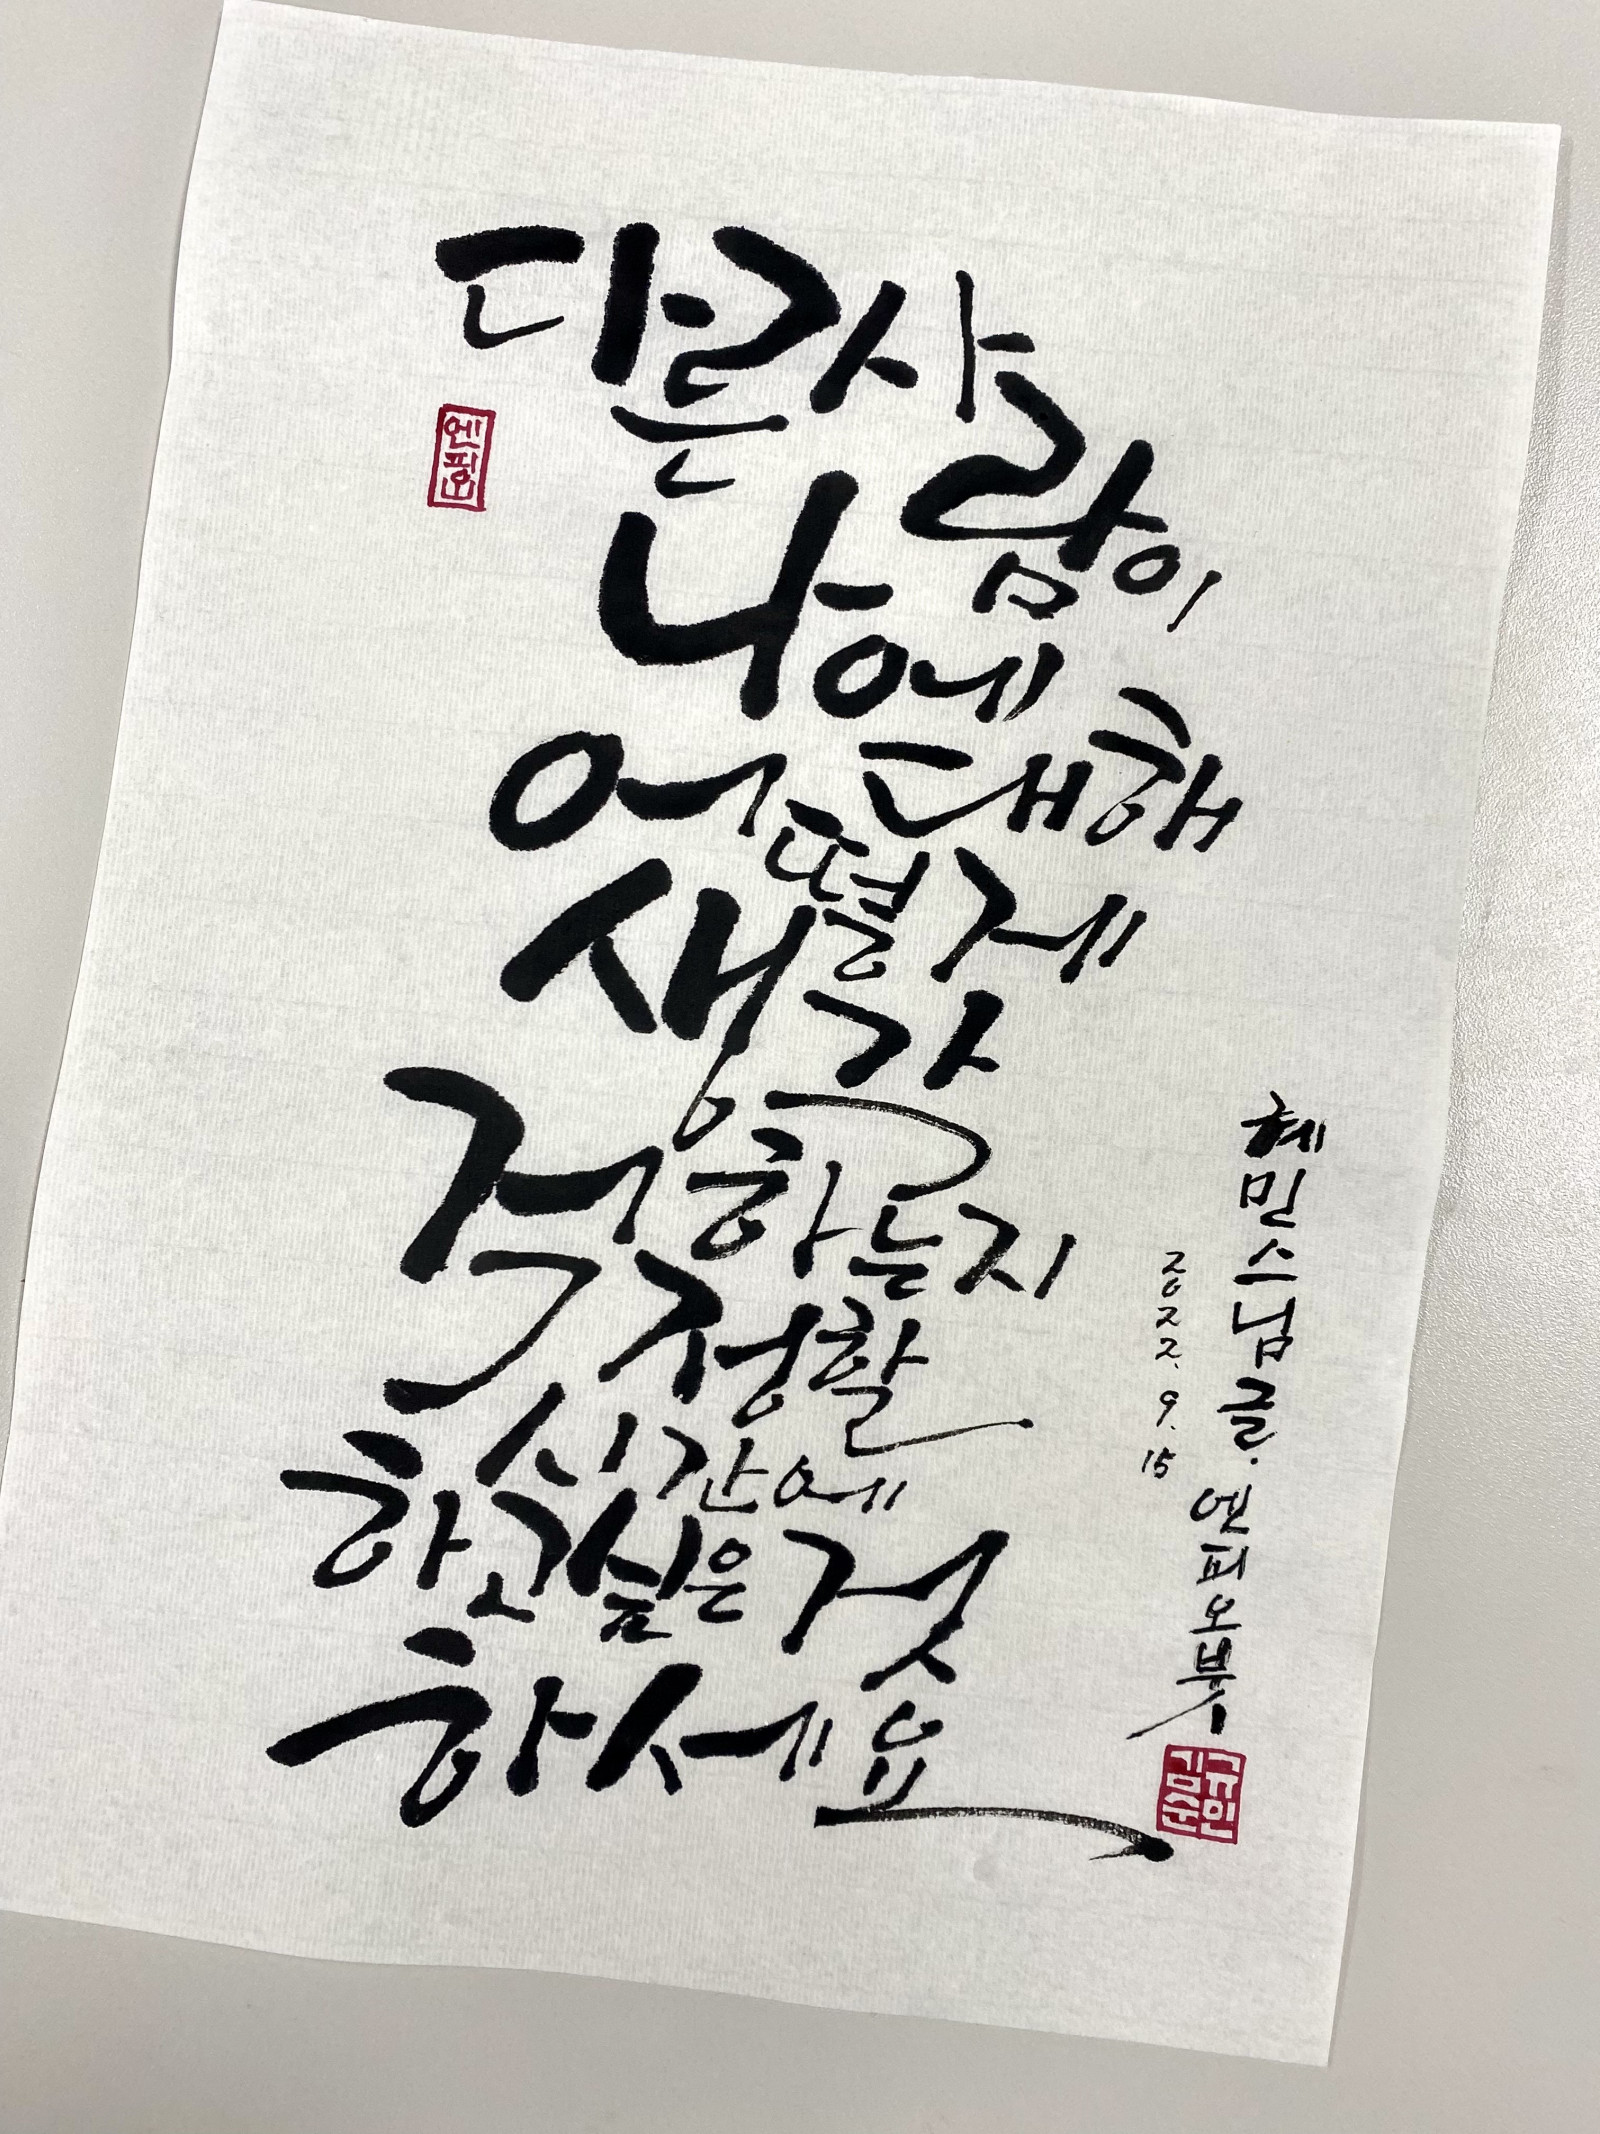 다른 사람이
나에 대해
어떻게
생각
하는지
걱정할
시간에
하고 싶은 것
하세요
혜민스님 글. 엔피오붓
2022. 9. 15